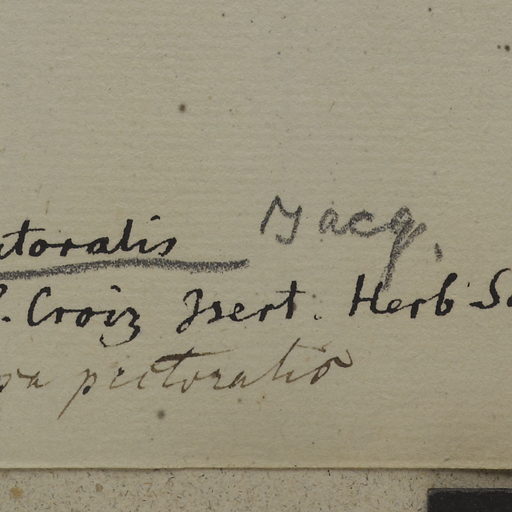 ctoralis Jacq.
. Croix Isert. Herb
pectoralis